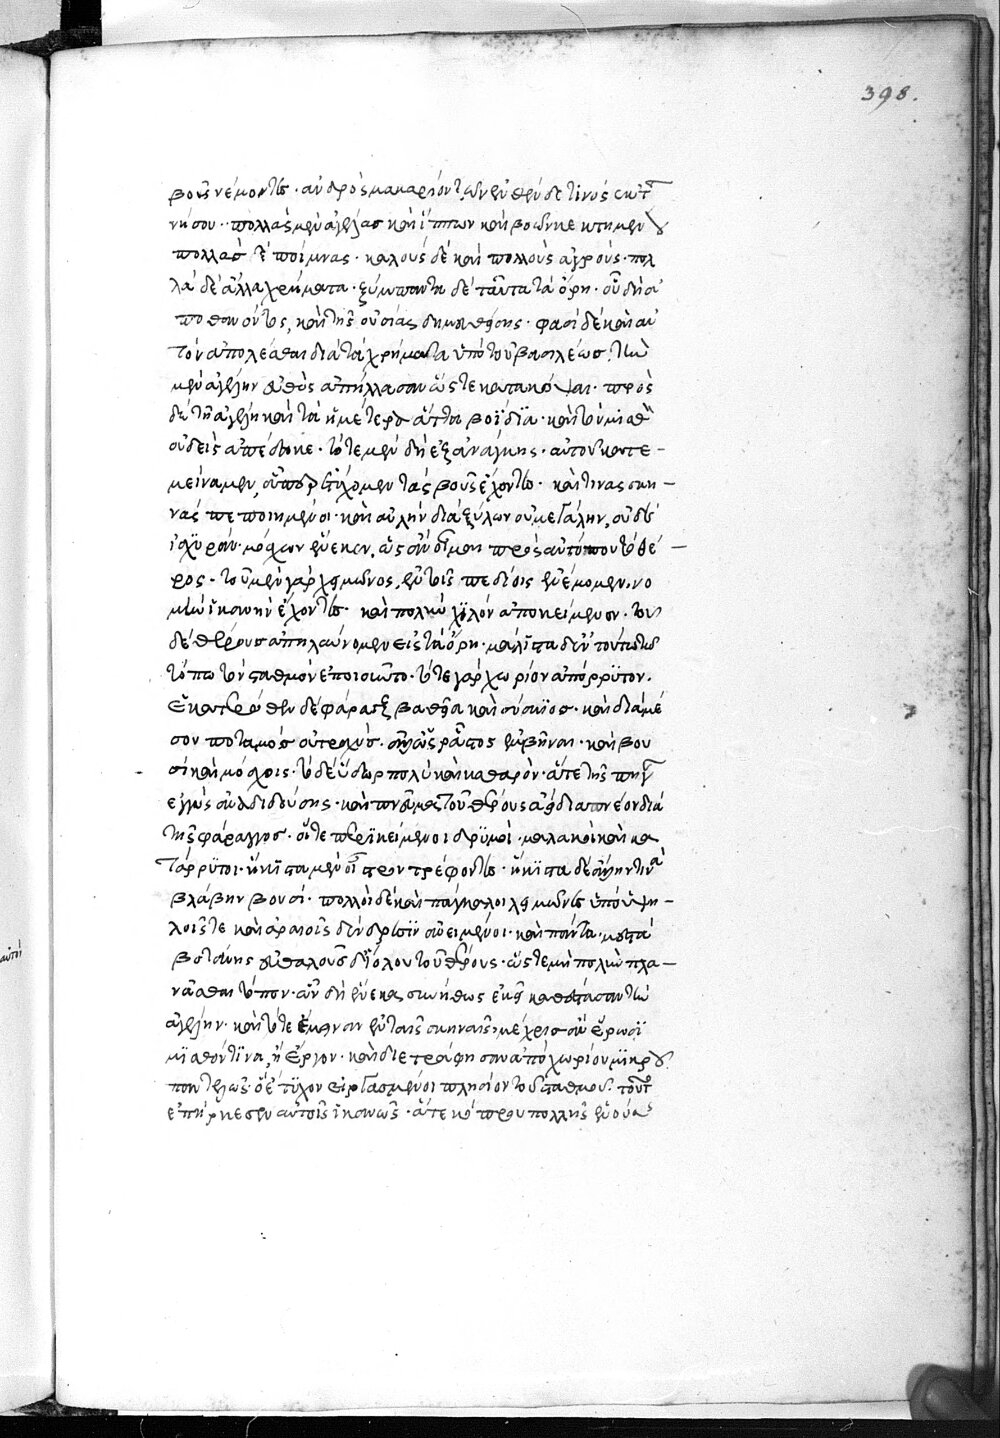 398.
βοῦς νέμοντες· ἀνδρὸς μακαρίου τῶν ἐνθένδε τινὸς ἐκ τῆς
νήσου· πολλὰς μὲν ἀγέλας καὶ ἵππων καὶ βοῶν κεκτημένου
πολλὰς δὲ ποίμνας· καλοὺς δὲ καὶ πολλοὺς ἀγρούς· πολ
λὰ δὲ ἄλλα χρήματα· ξύμπαντα δὲ ταῦτα τὰ ὄρη· οὗ δὴ ἀ
ποθανόντος, καὶ τῆς οὐσίας δημευθείσης· φασὶ δὲ καὶ αὐ
τὸν ἀπολέσθαι διὰ τὰ χρήματα ὑπὸ τοῦ βασιλέως· τὴν
μὲν ἀγέλην εὐθὺς ἀπήλασαν ὥστε κατακόψαι· πρὸς
δὲ τῇ ἀγέλῃ καὶ τὰ ἡμέτερα ἄττα βοΐδια· καὶ τὸν μισθὸν
οὐδεὶς ἀπέδωκε· τότε μὲν δὴ ἐξ ἀνάγκης· αὐτοῦ κατε-
μείναμεν, οὗπερ ἐτύχομεν τὰς βοῦς ἔχοντες· καί τινας σκη-
νὰς πεποιημένοι· καὶ αὐλὴν διὰ ξύλων οὐ μεγάλην, οὐδὲ
ἰσχυράν· μόσχων ἕνεκεν, ὡς ἂν οἶμαι πρὸς αὐτό που τὸ θέ-
ρος· τοῦ μὲν γὰρ χειμῶνος, ἐν τοῖς πεδίοις ἐνέμομεν, νο
μὴν ἱκανὴν ἔχοντες· καὶ πολὺν χιλὸν ἀποκείμενον· τοῦ
δὲ θέρους ἀπηλαύνομεν εἰς τὰ ὄρη· μάλιστα δ' ἐν τούτῳ τῷ
τόπῳ τὸν σταθμὸν ἐποιοῦντο· τό τε γὰρ χωρίον ἀπόρρυτον·
ἑκατέρωθεν δὲ φάραγξ βαθεῖα καὶ σύσκιος· καὶ διὰ μέ
σου ποταμὸς οὐ τραχύς· ἀλλ' ὡς ῥᾷστος ἐμβῆναι· καὶ βου
σὶ καὶ μόσχοις· τὸ δὲ ὕδωρ πολὺ καὶ καθαρόν· ἅτε τῆς πηγῆς
ἐγγὺς ἀναδιδούσης· καὶ πνεῦμα τοῦ θέρους ἀεὶ διαπνέον διὰ
τῆς φάραγγος· οἵ τε περικείμενοι δρυμοὶ· μαλακοὶ καὶ κα
τάρρυτοι· ἥκιστα μὲν οἶστρον τρέφοντες· ἥκιστα δὲ ἄλλην τινὰ
βλάβην βουσί· πολλοὶ δὲ καὶ πάγκαλοι λειμῶνες ὑπὸ ὑψη-
λοῖς τε καὶ ἀραιοῖς δένδρεσιν ἀνειμένοι· καὶ πάντα μεστὰ
βοτάνης εὐθαλοῦς δι' ὅλου τοῦ θέρους· ὥστε μὴ πολὺν πλα-
νᾶσθαι τόπον· ὧν δὴ ἕνεκα συνήθως ἐκεῖ καθίστασαν τὴν
ἀγέλην· καὶ τότε ἔμειναν ἐν ταῖς σκηναῖς· μέχρις ἂν εὕρωσι
μισθόν τινα, ἢ ἔργον· καὶ διετράφησαν ἀπὸ χωρίου μικροῦ
παντελῶς· ὃ ἔτυχον εἰργασμένοι πλησίον τοῦ σταθμοῦ· τοῦτο
ἐπήρκεσεν αὐτοῖς ἱκανῶς· ἅτε κόπρου πολλῆς ἐνούσης